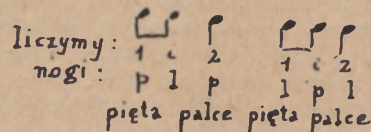 liczymy: 1 i 2 1 i 2
nogi: p l p l p l
pięta palce pięta palce